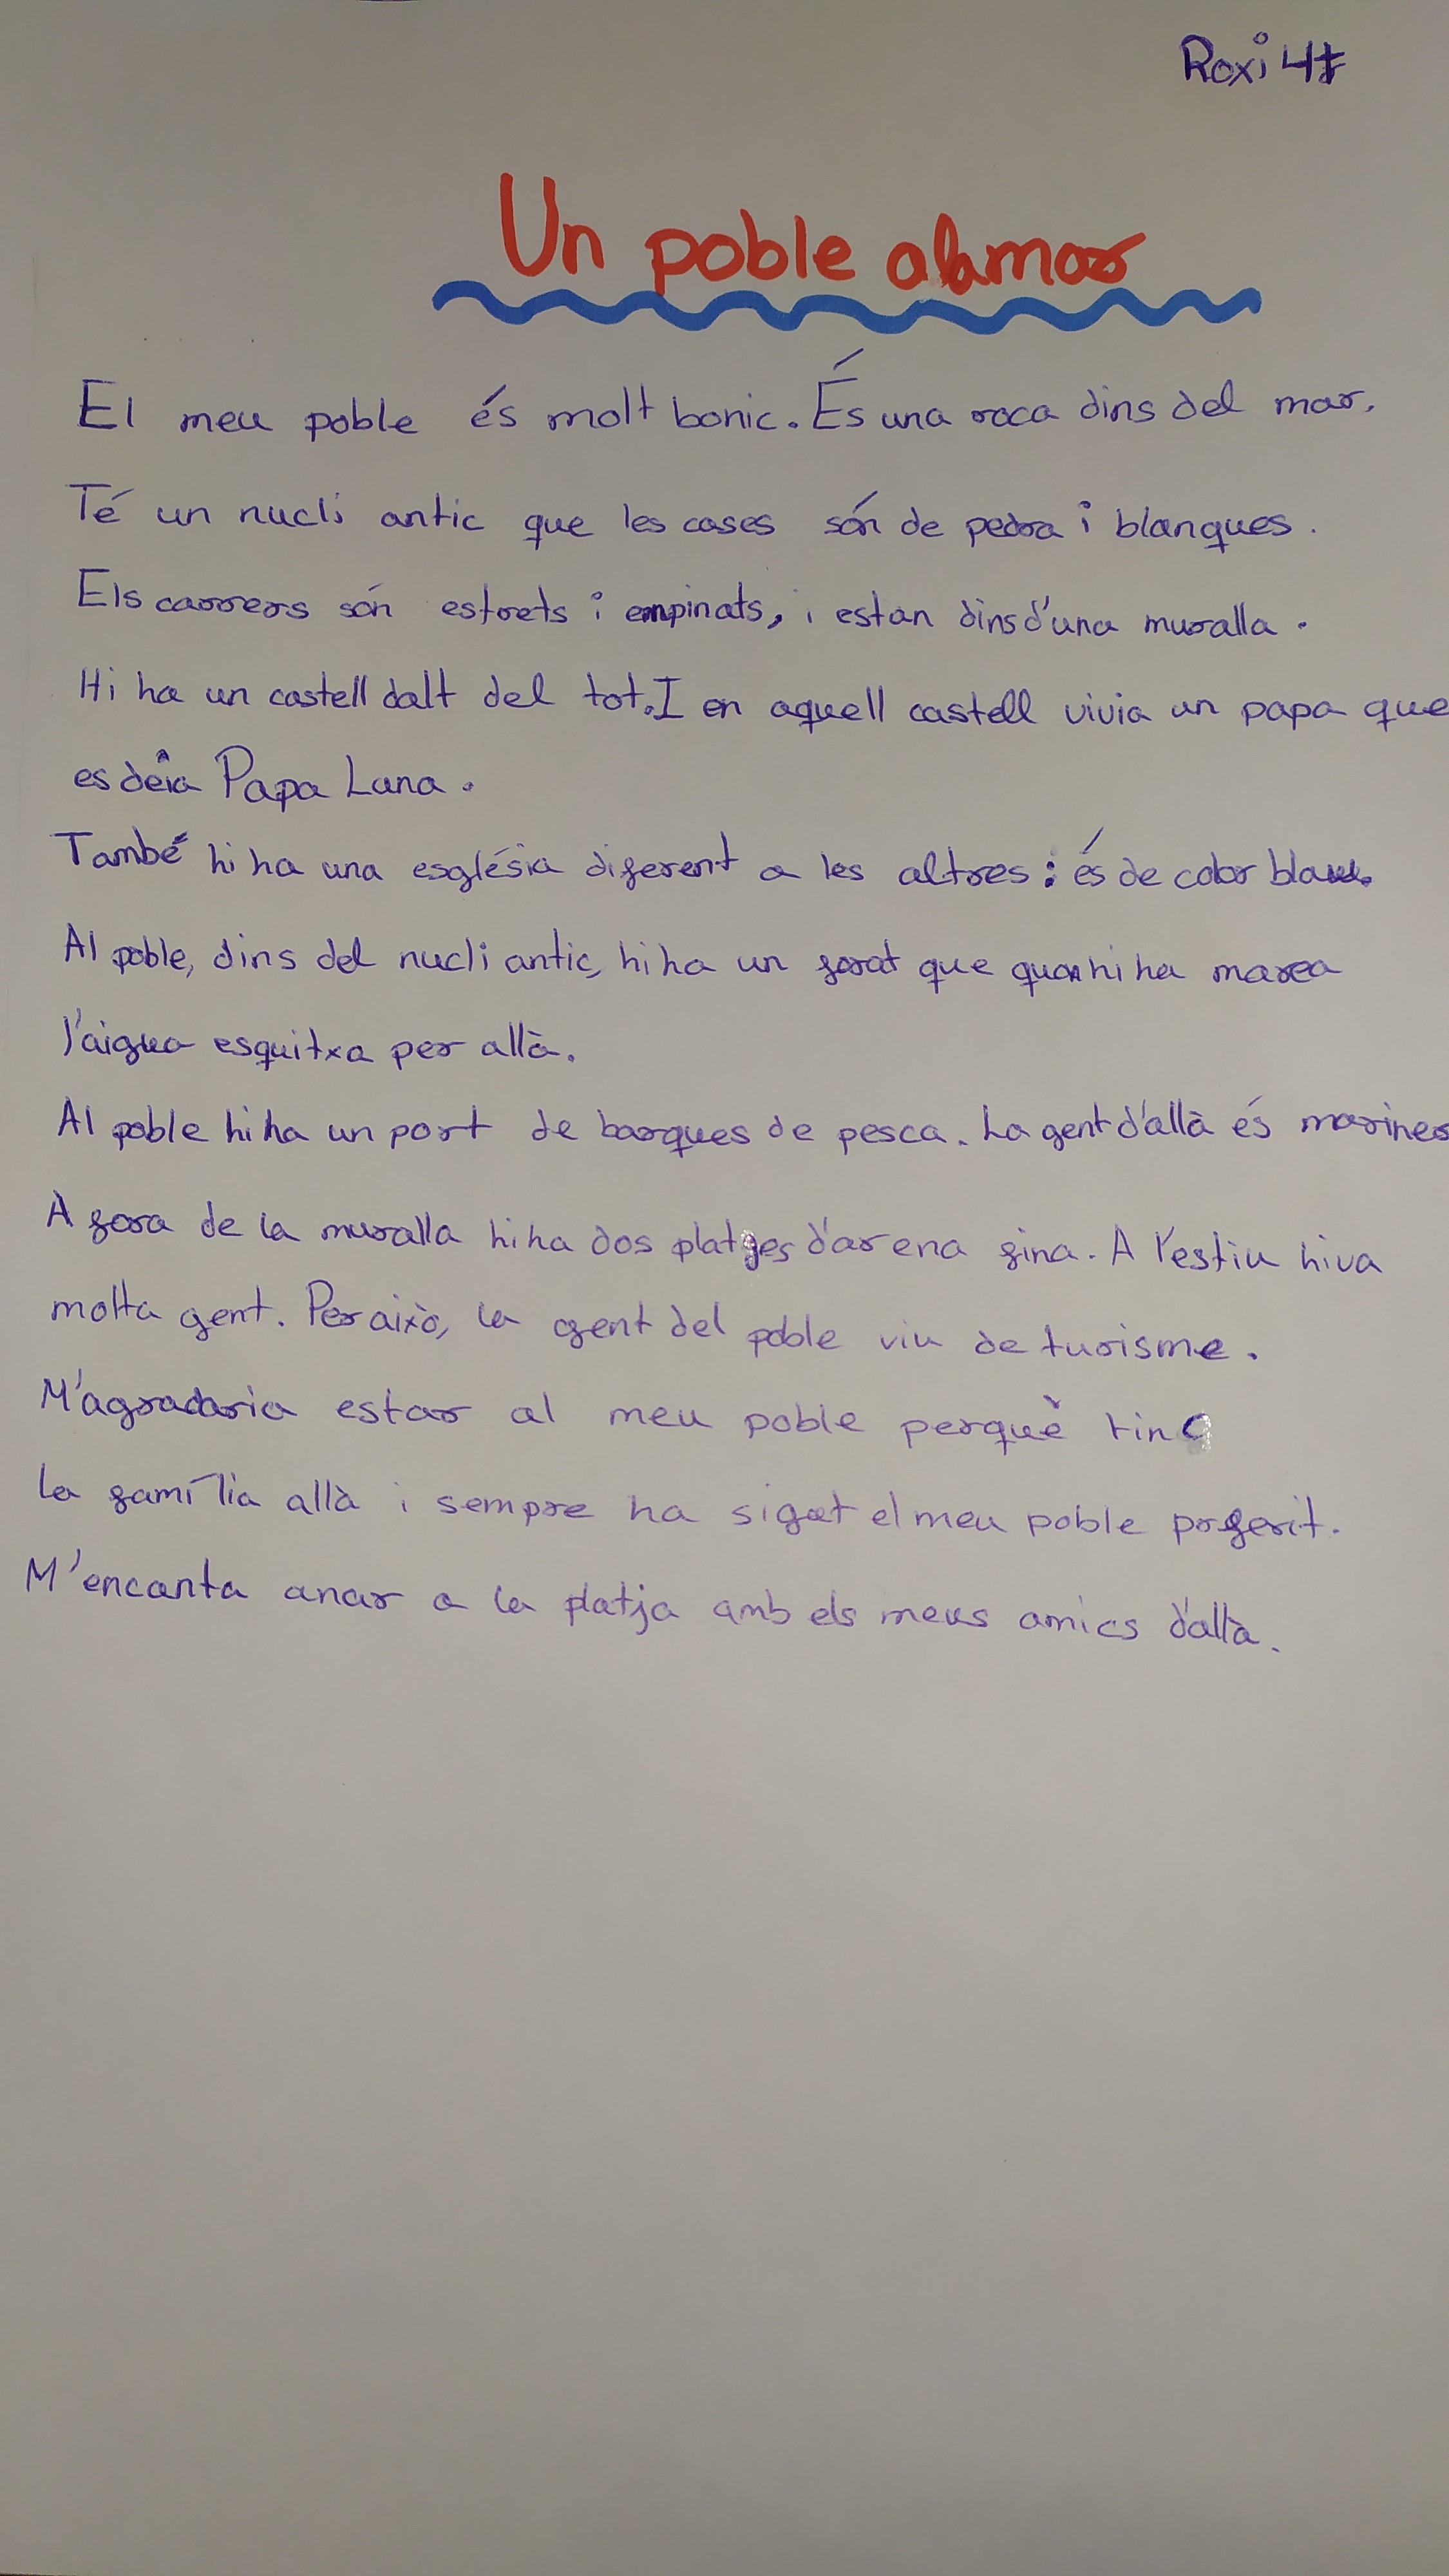 Roxi 4t
Un poble a la mar
El meu poble és molt bonic. És una roca dins del mar.
Té un nucli antic que les cases són de pedra i blanques.
Els carrers són estrets i empinats, i estan dins d'una muralla.
Hi ha un castell dalt del tot. I en aquell castell vivia un papa que
es deia Papa Luna.
També hi ha una església diferent a les altres: és de color blau.
Al poble, dins del nucli antic, hi ha un forat que quan hi ha marea
l'aigua esquitxa per allà.
Al poble hi ha un port de barques de pesca. La gent d'allà és marinera
A fora de la muralla hi ha dos platges d'arena fina. A l'estiu hi va
molta gent. Per això, la gent del poble viu de turisme.
M'agradaria estar al meu poble perquè tinc
la família allà i sempre ha sigut el meu poble preferit.
M'encanta anar a la platja amb els meus amics d'allà.